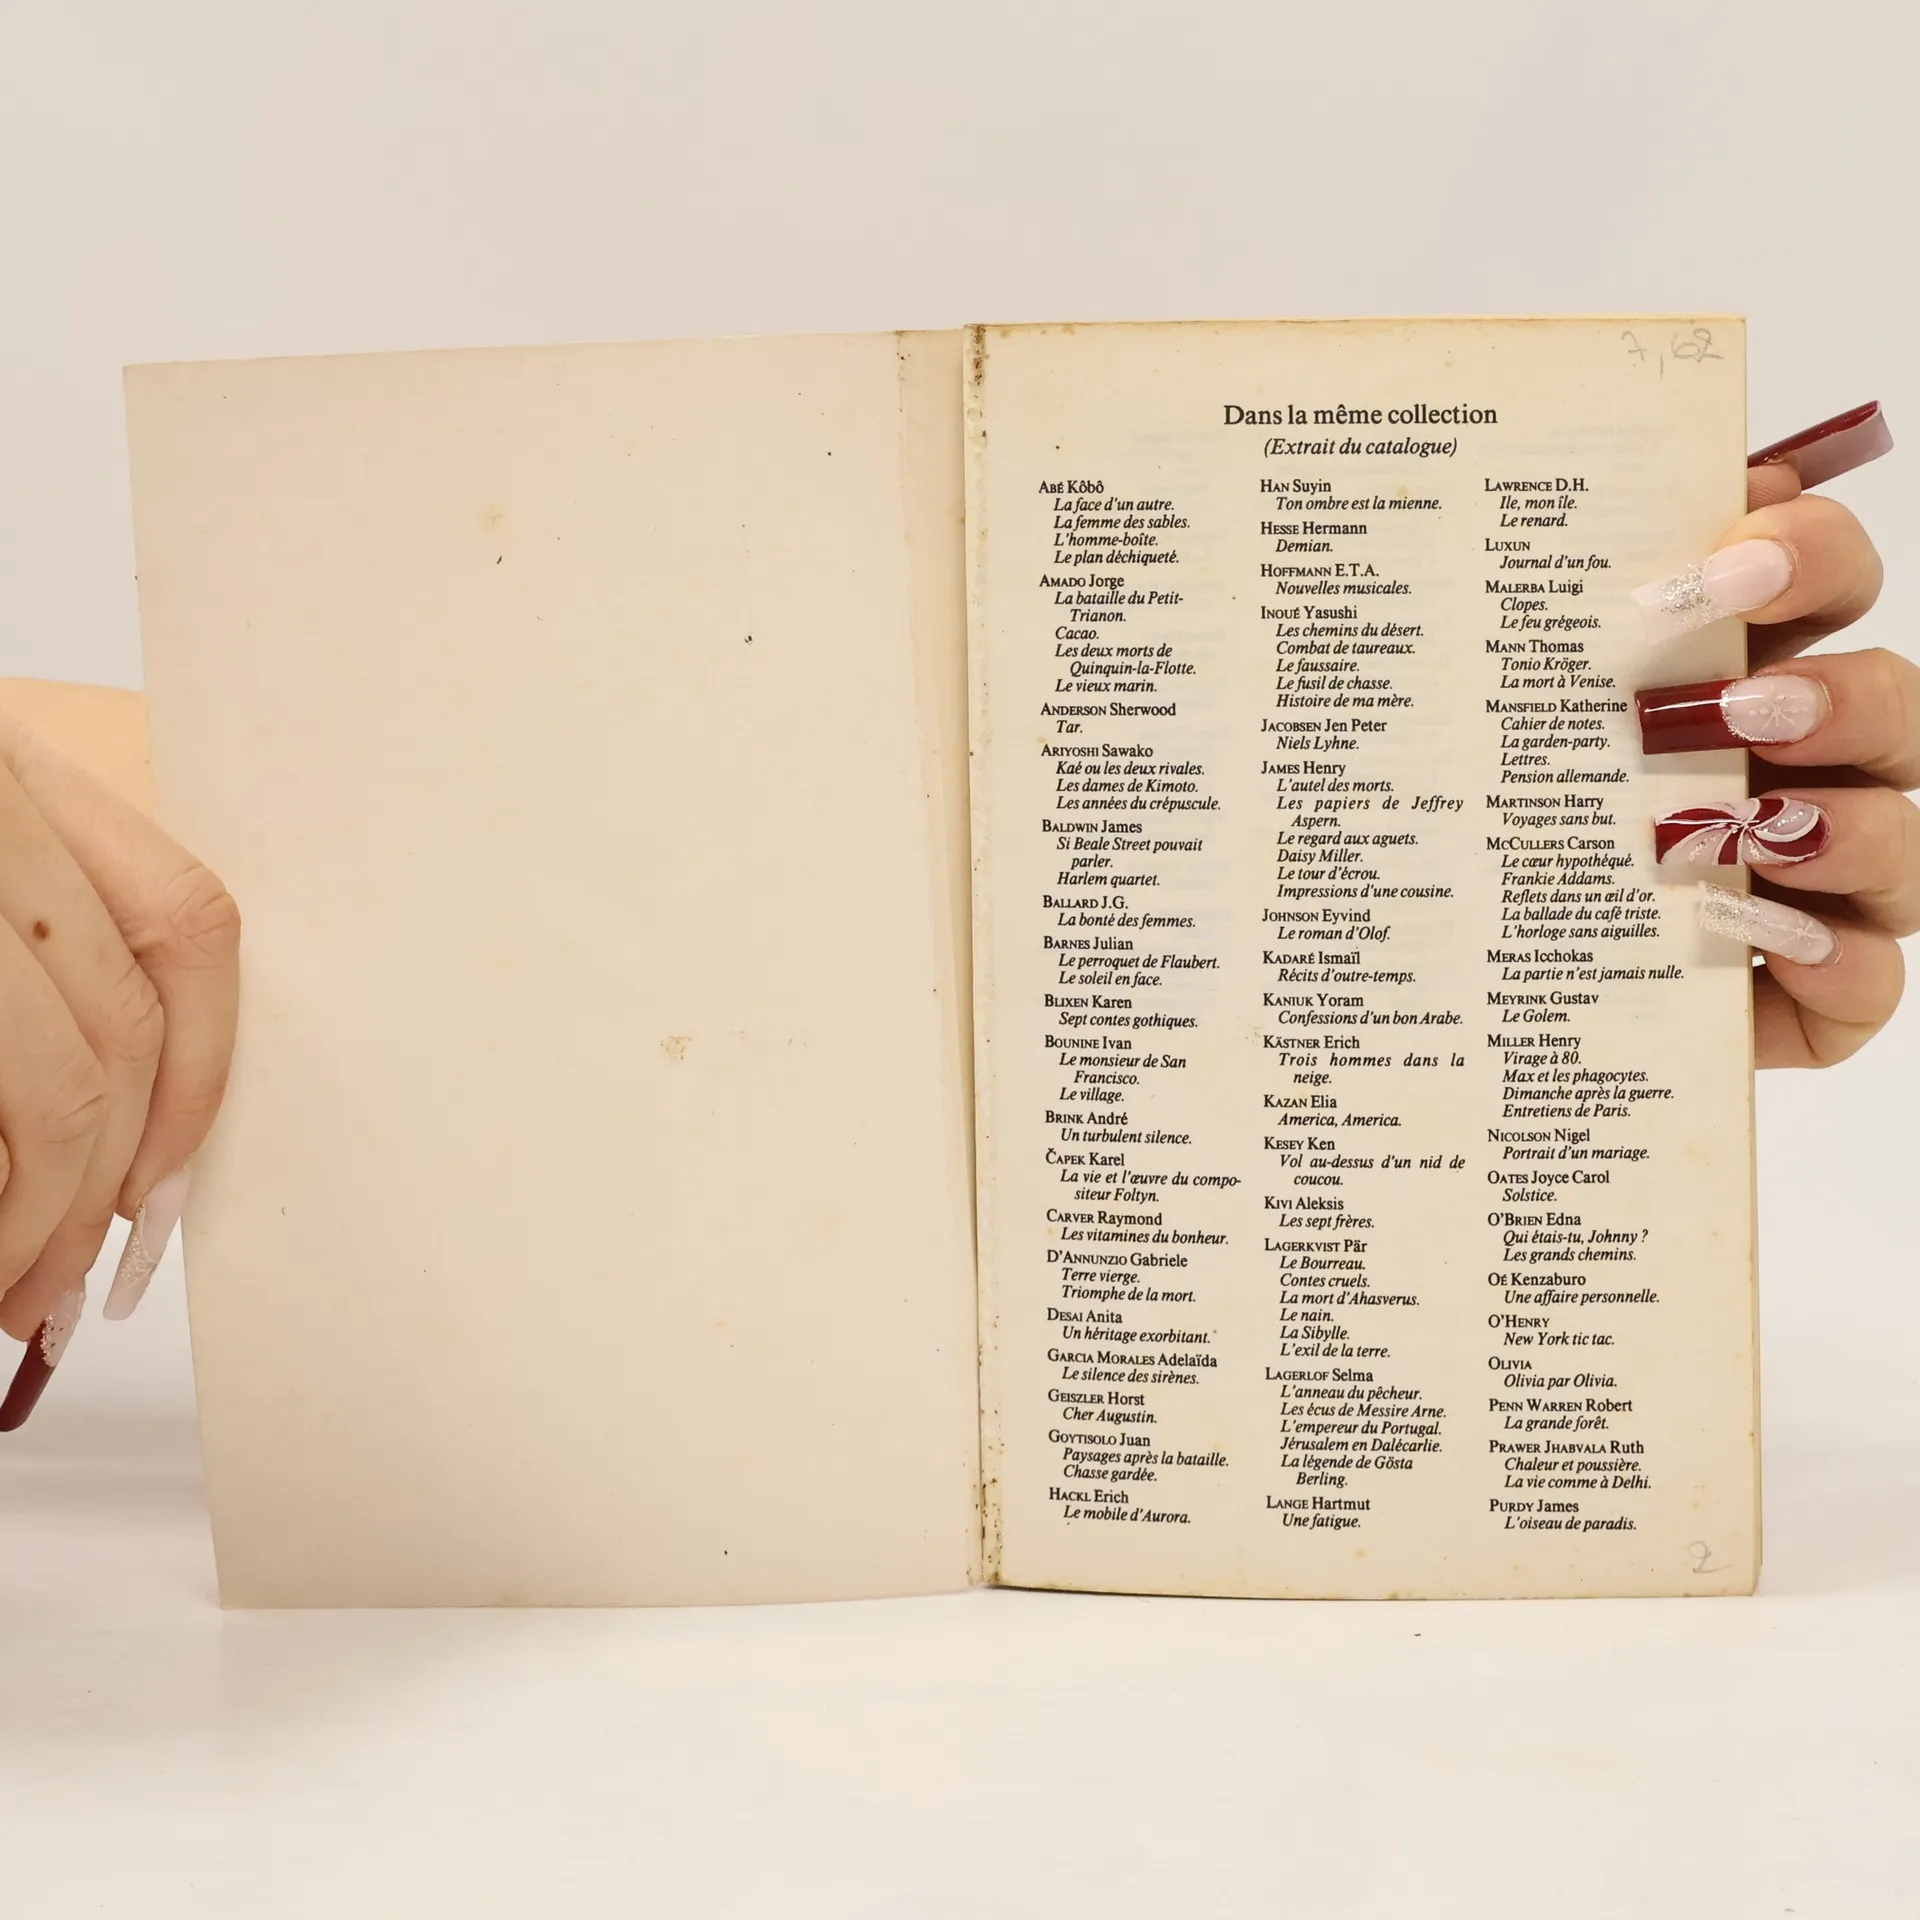 7,62
Dans la même collection
(Extrait du catalogue)
ABÉ Kôbô
La face d'un autre.
La femme des sables.
L'homme-boîte.
Le plan déchiqueté.
AMADO Jorge
La bataille du Petit-
Trianon.
Cacao.
Les deux morts de
Quinquin-la-Flotte.
Le vieux marin.
ANDERSON Sherwood
Tar.
ARIYOSHI Sawako
Kaé ou les deux rivales.
Les dames de Kimoto.
Les années du crépuscule.
BALDWIN James
Si Beale Street pouvait
parler.
Harlem quartet.
BALLARD J.G.
La bonté des femmes.
BARNES Julian
Le perroquet de Flaubert.
Le soleil en face.
BLIXEN Karen
Sept contes gothiques.
BOUNINE Ivan
Le monsieur de San
Francisco.
Le village.
BRINK André
Un turbulent silence.
ČAPEK Karel
La vie et l'œuvre du compo-
siteur Foltyn.
CARVER Raymond
Les vitamines du bonheur.
D'ANNUNZIO Gabriele
Terre vierge.
Triomphe de la mort.
DESAI Anita
Un héritage exorbitant.
GARCIA MORALES Adelaïda
Le silence des sirènes.
GEISZLER Horst
Cher Augustin.
GOYTISOLO Juan
Paysages après la bataille.
Chasse gardée.
HACKL Erich
Le mobile d'Aurora.
HAN Suyin
Ton ombre est la mienne.
HESSE Hermann
Demian.
HOFFMANN E.T.A.
Nouvelles musicales.
INOUÉ Yasushi
Les chemins du désert.
Combat de taureaux.
Le faussaire.
Le fusil de chasse.
Histoire de ma mère.
JACOBSEN Jen Peter
Niels Lyhne.
JAMES Henry
L'autel des morts.
Les papiers de Jeffrey
Aspern.
Le regard aux aguets.
Daisy Miller.
Le tour d'écrou.
Impressions d'une cousine.
JOHNSON Eyvind
Le roman d'Olof.
KADARÉ Ismaïl
Récits d'outre-temps.
KANIUK Yoram
Confessions d'un bon Arabe.
KÄSTNER Erich
Trois hommes dans la
neige.
KAZAN Elia
America, America.
KESEY Ken
Vol au-dessus d'un nid de
coucou.
KIVI Aleksis
Les sept frères.
LAGERKVIST Pär
Le Bourreau.
Contes cruels.
La mort d'Ahasverus.
Le nain.
La Sibylle.
L'exil de la terre.
LAGERLOF Selma
L'anneau du pêcheur.
Les écus de Messire Arne.
L'empereur du Portugal.
Jérusalem en Dalécarlie.
La légende de Gösta
Berling.
LANGE Hartmut
Une fatigue.
LAWRENCE D.H.
Ile, mon île.
Le renard.
LUXUN
Journal d'un fou.
MALERBA Luigi
Clopes.
Le feu grégeois.
MANN Thomas
Tonio Kröger.
La mort à Venise.
MANSFIELD Katherine
Cahier de notes.
La garden-party.
Lettres.
Pension allemande.
MARTINSON Harry
Voyages sans but.
MCCULLERS Carson
Le cœur hypothéqué.
Frankie Addams.
Reflets dans un œil d'or.
La ballade du café triste.
L'horloge sans aiguilles.
MERAS Icchokas
La partie n'est jamais nulle.
MEYRINK Gustav
Le Golem.
MILLER Henry
Virage à 80.
Max et les phagocytes.
Dimanche après la guerre.
Entretiens de Paris.
NICOLSON Nigel
Portrait d'un mariage.
OATES Joyce Carol
Solstice.
O'BRIEN Edna
Qui étais-tu, Johnny ?
Les grands chemins.
OÉ Kenzaburo
Une affaire personnelle.
O'HENRY
New York tic tac.
OLIVIA
Olivia par Olivia.
PENN WARREN Robert
La grande forêt.
PRAWER JHABVALA Ruth
Chaleur et poussière.
La vie comme à Delhi.
PURDY James
L'oiseau de paradis.
2